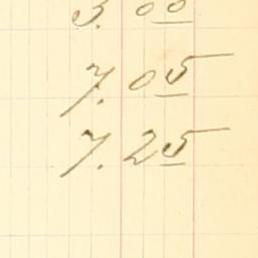 3.00
7.05
7.25